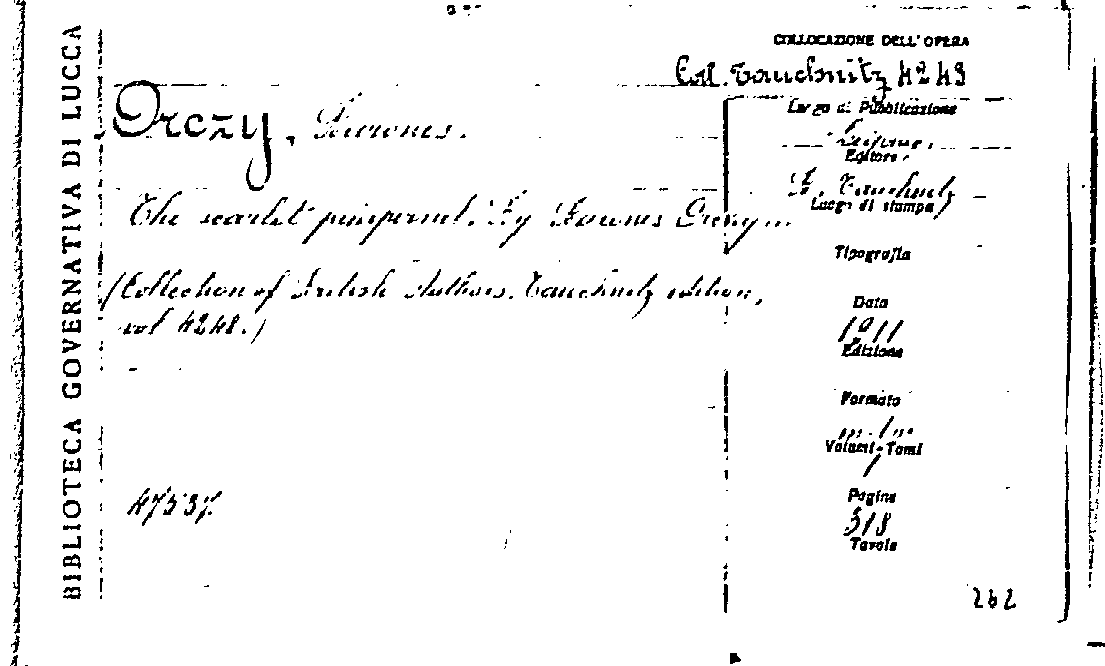 BIBLIOTECA GOVERNATIVA DI LUCCA
COLLOCAZIONE DELL'OPERA
Col. Tauchnitz 4248
Orczy, Baroness.
Luogo di Pubblicazione
Leipzig.
Editore
B. Tauchnitz
The scarlet pimpernel. By Baroness Orczy...
Luogo di stampa
Tipografia
(Collection of British Authors. Tauchnitz edition,
vol. 4248.)
Data
1911
Edizione
Formato
Volumi-Tomi
1
47537
Pagine
318
Tavole
262